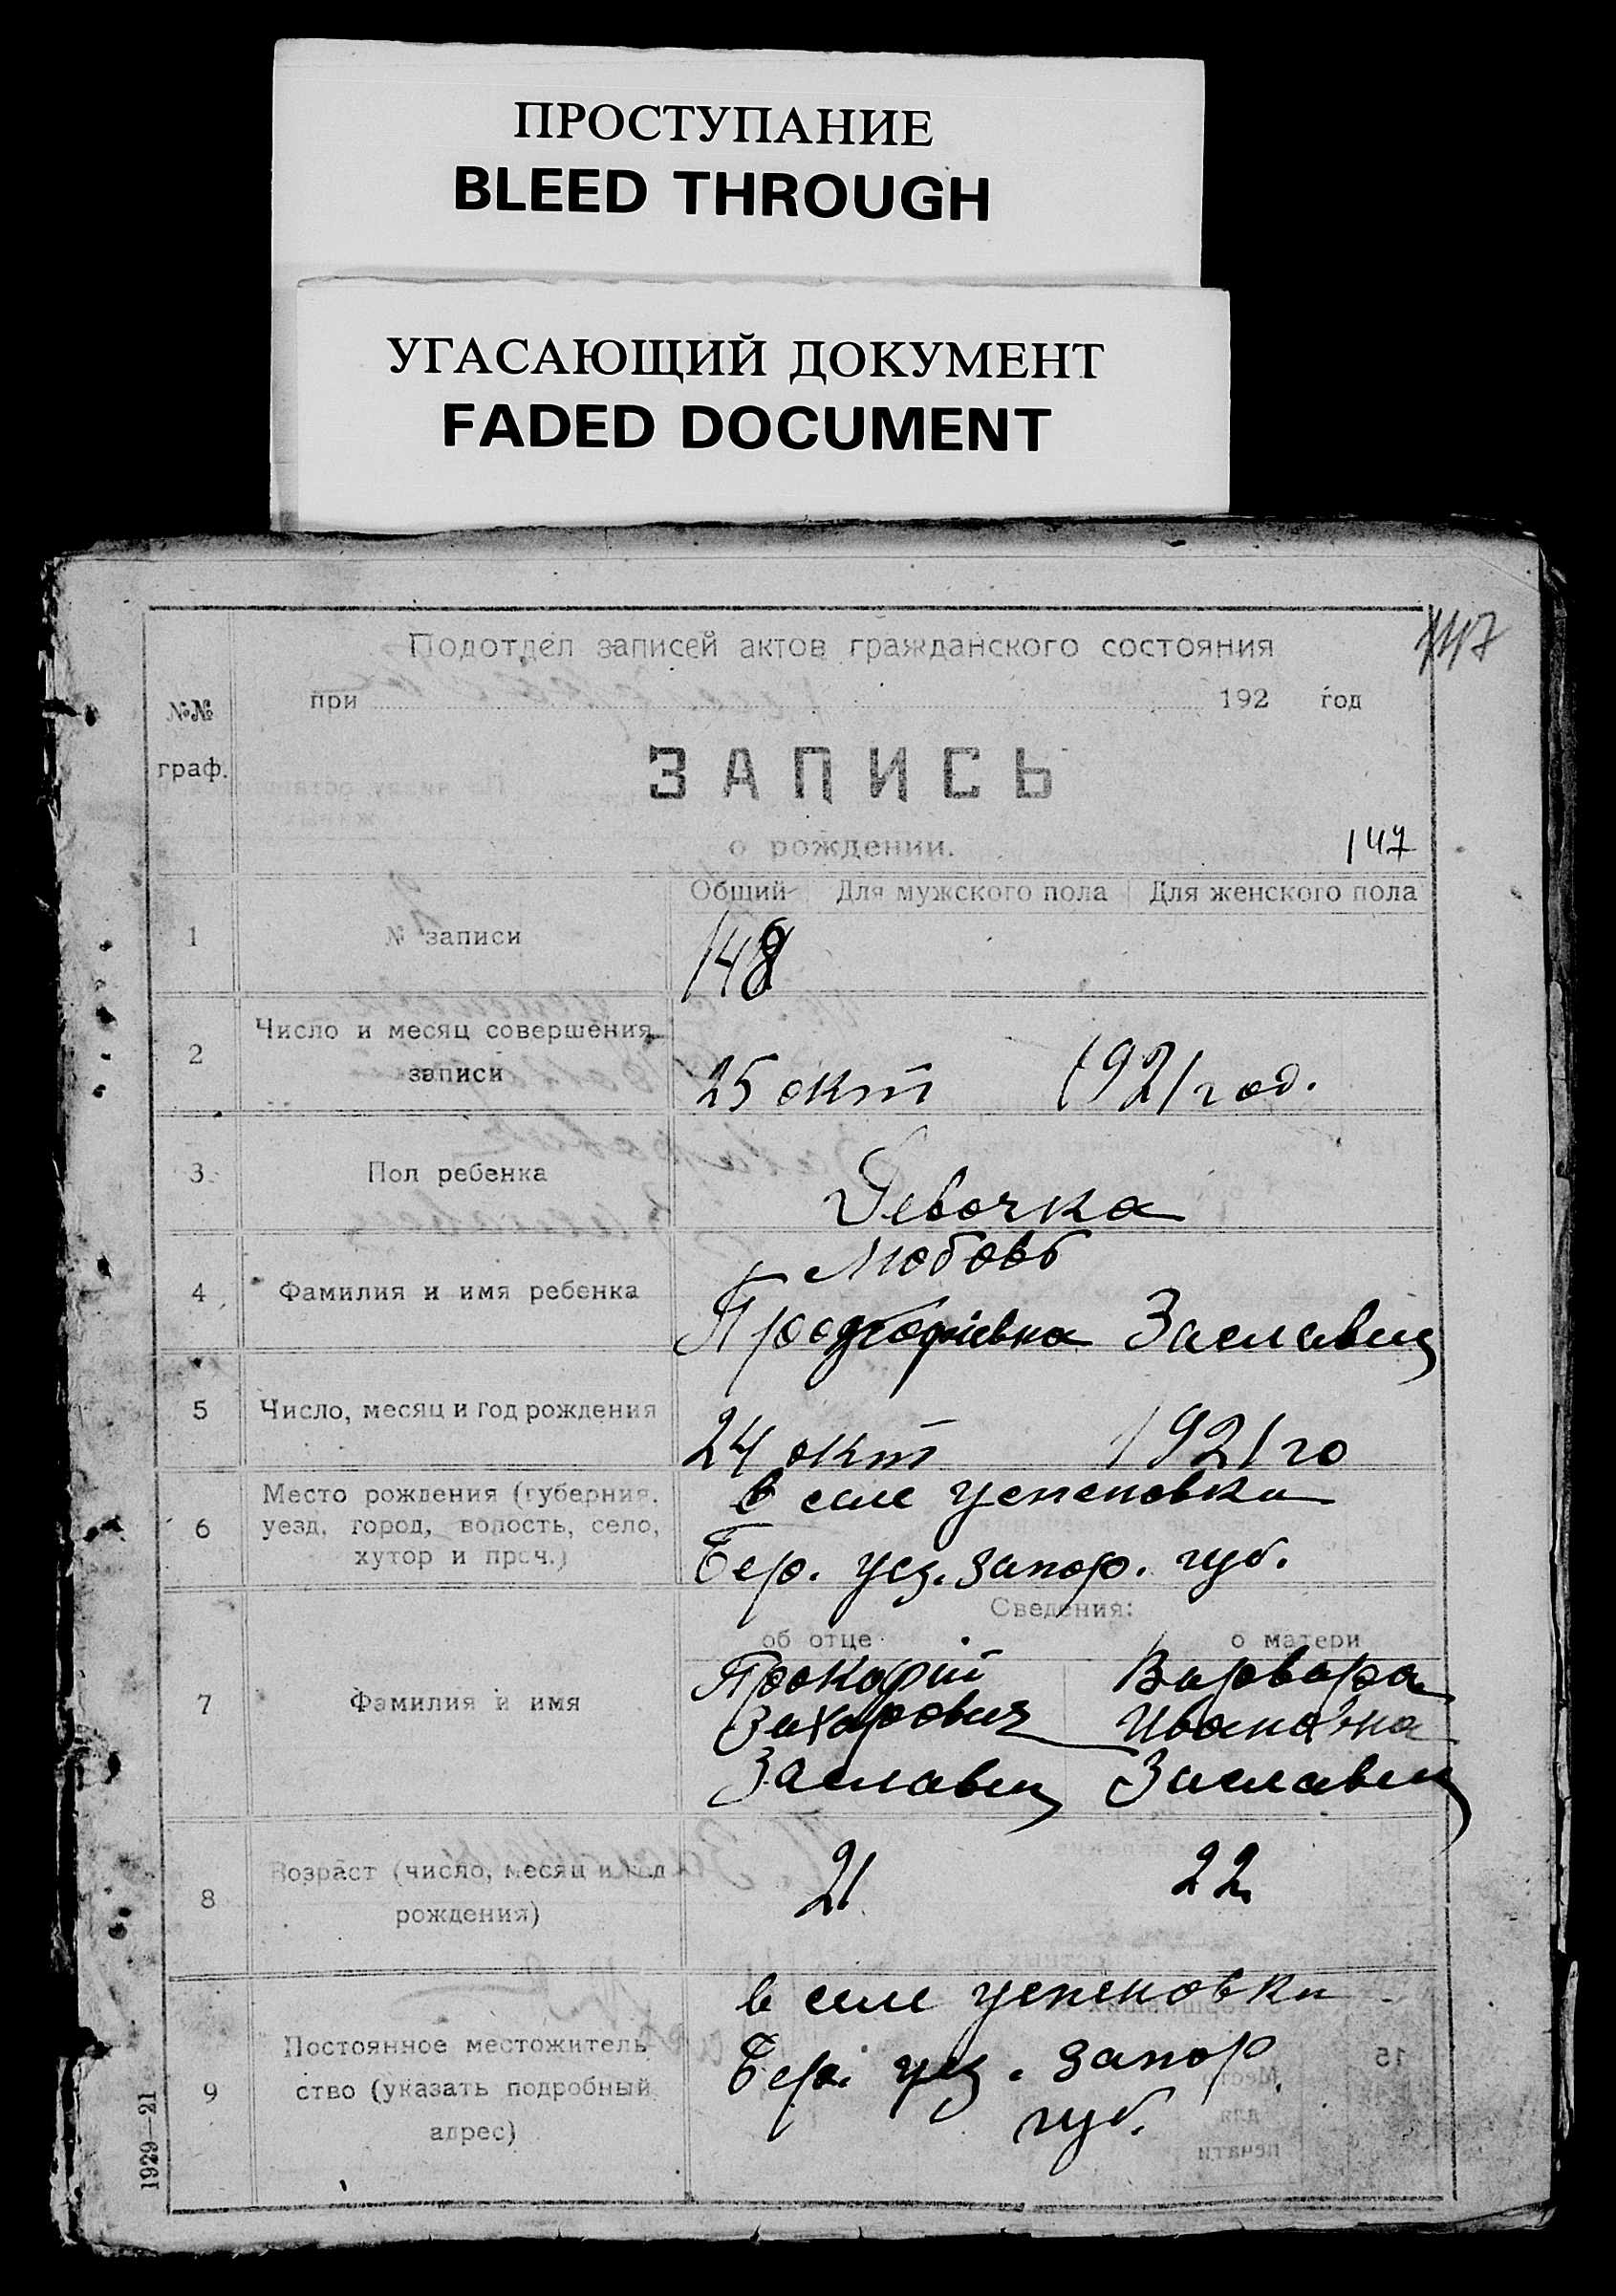 ПРОСТУПАНИЕ
BLEED THROUGH
УГАСАЮЩИЙ ДОКУМЕНТ
FADED DOCUMENT
147
Подотдел записей актов гражданского состояния
при 192 год
№№
граф.
ЗАПИСЬ
о рождении.
147
Общий Для мужского пола Для женского пола
1 № записи 148
2 Число и месяц совершения
записи
25 окт 1921 год.
3 Пол ребенка Девочка
4 Фамилия и имя ребенка
Любовь
Заславец
5 Число, месяц и год рождения
24 окт 1921 го
6 Место рождения (губерния,
уезд, город, волость, село,
хутор и проч.)
в селе Успеновка
Бер. уез. запор. губ.
Сведения:
об отце о матери
7 Фамилия и имя
Прокофий Варвара
Захарович Ивановна
Заславец Заславец
8 Возраст (число, месяц и год
рождения)
21 22
9 Постоянное местожитель
ство (указать подробный
адрес)
в селе Успеновки
Бер. уез. запор
губ.
1929—21
15
Место
для
печати